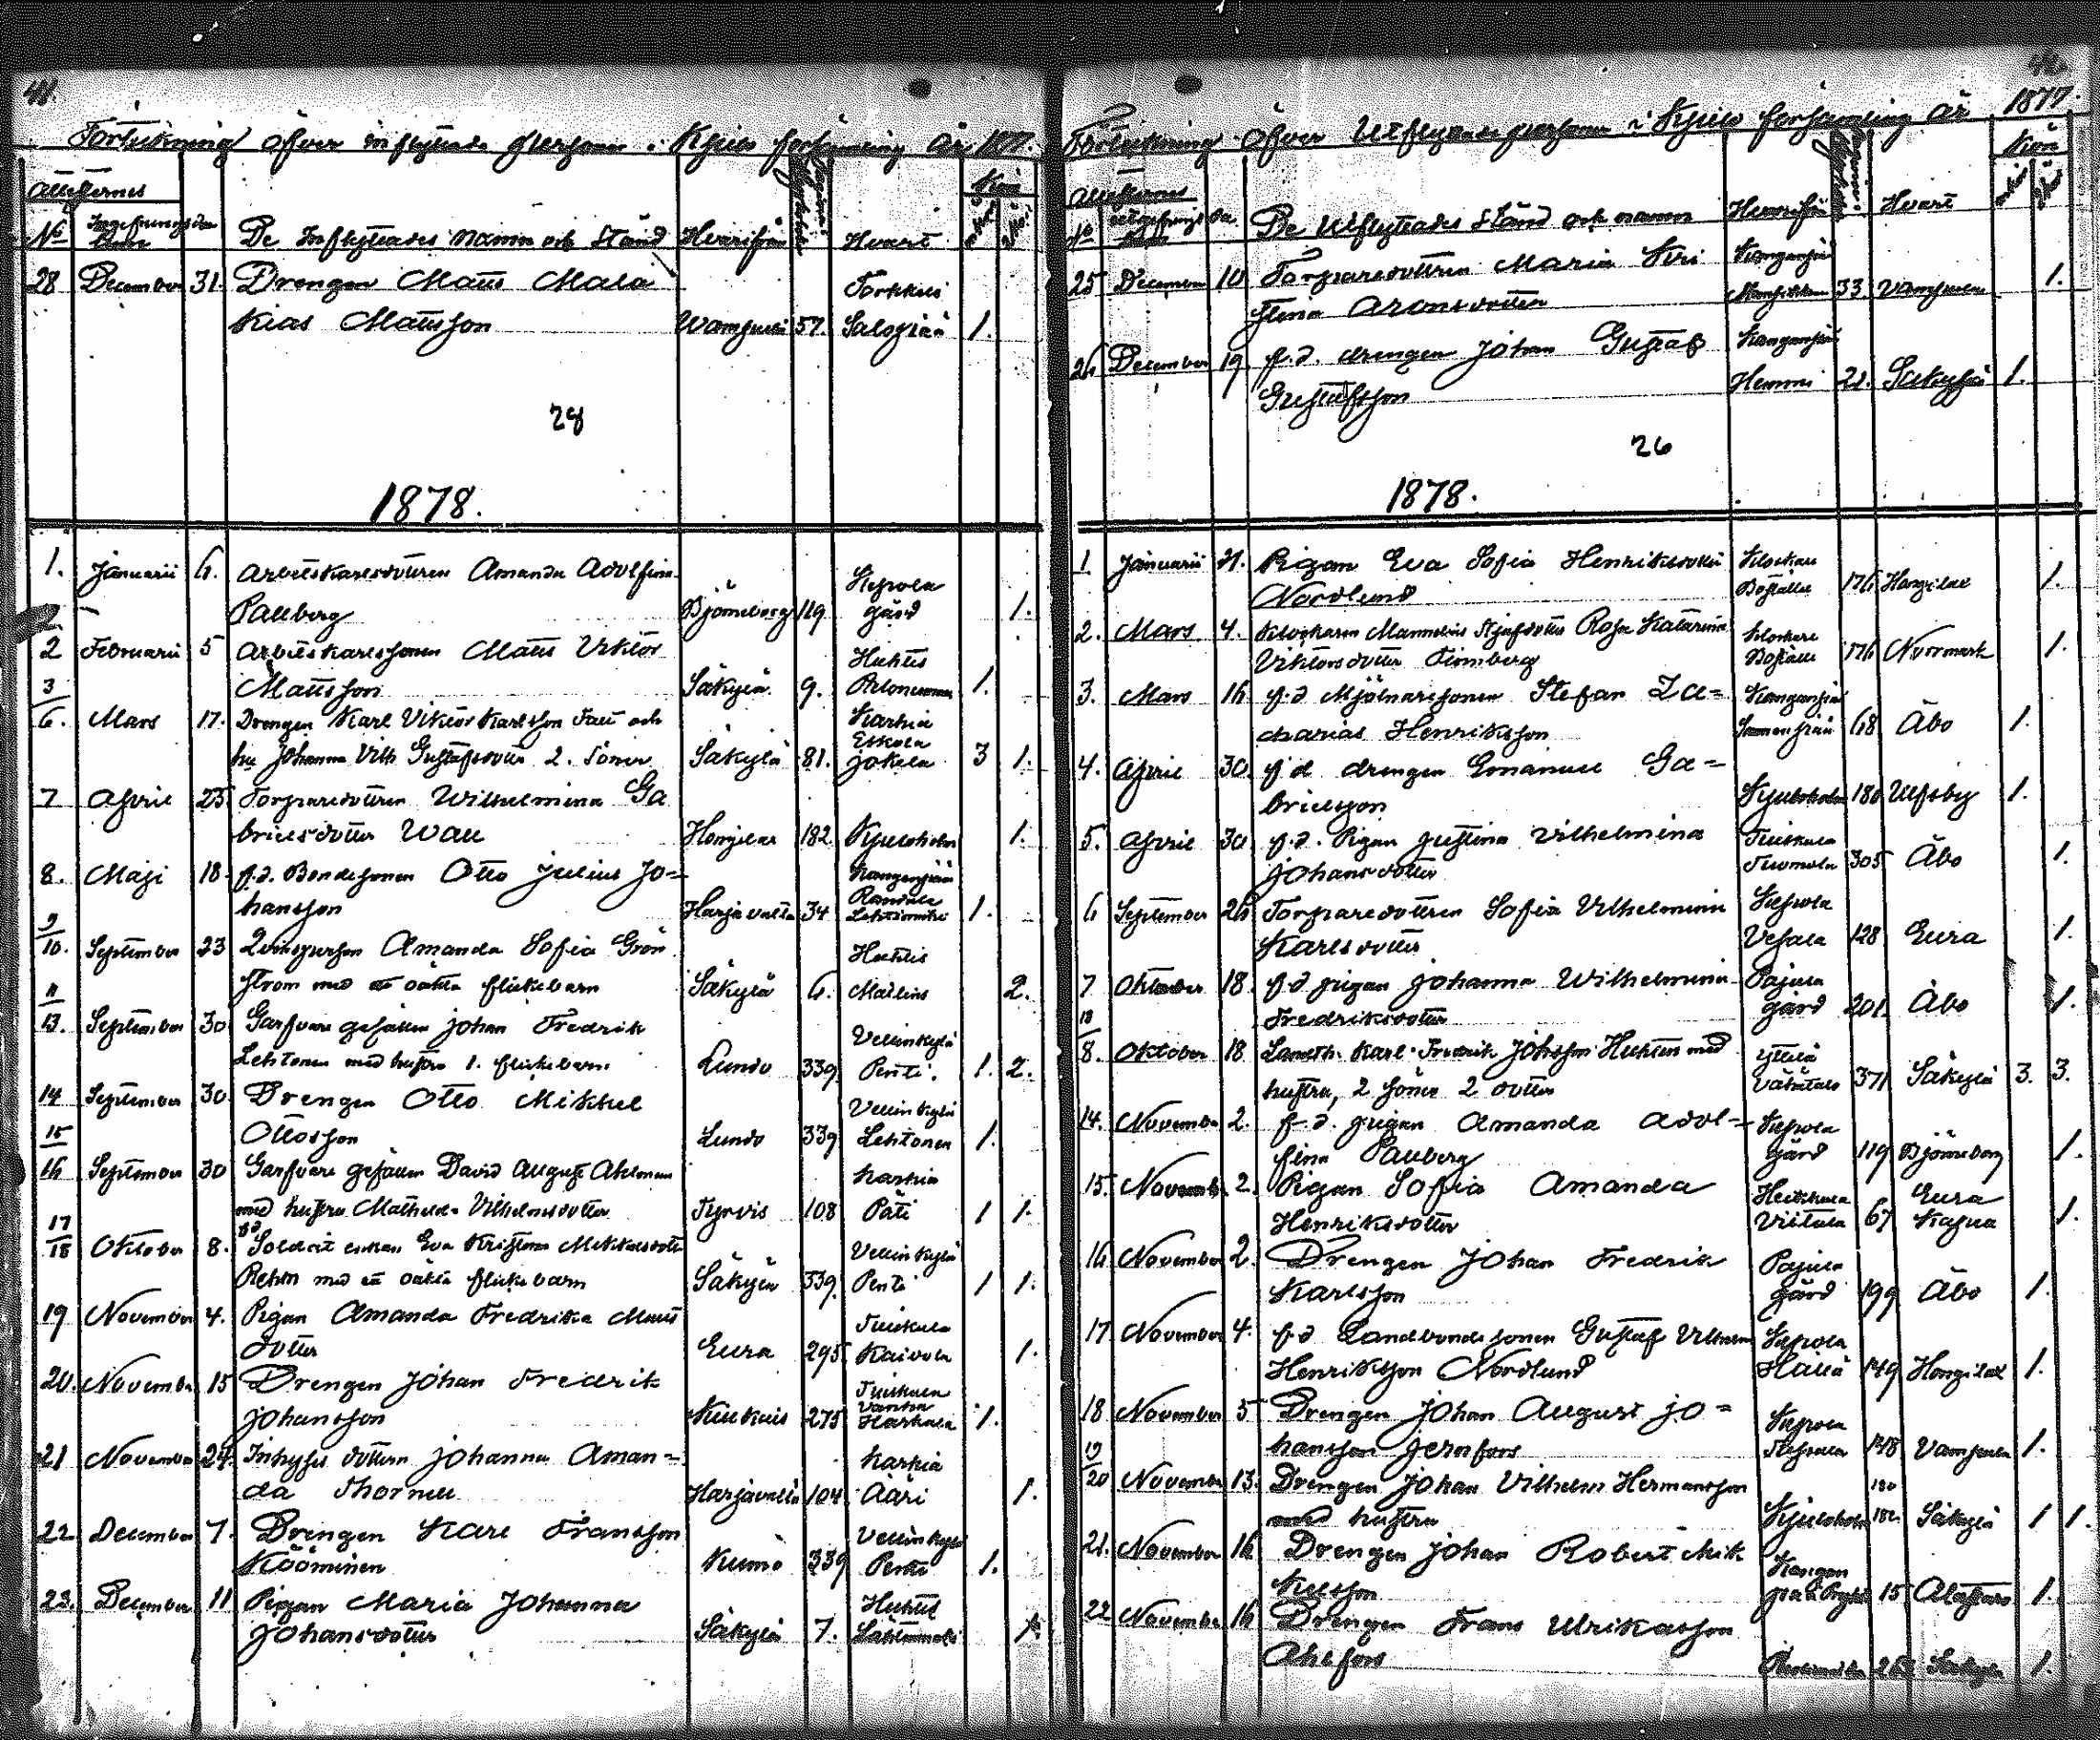 41.
Förteckning öfver inflyttade personer i Kjulo församling år 1877.
Attesternes
No Ingifningsdatum De Inflyttades namn och Stånd Hvarifrån Hvart Kön
28 December 31. Drengen Matts Mala
kias Mattsson Wampula 57. Torkkeli Salogiää 1.
28
1878.
1. Januarii 4. Arbetskarlsdottren Amanda Adolfina
Pallberg Björneborg 119 Kepola gård 1.
2 Februarii 5 Arbetskarlssonen Matts Viktor
Mattsson Säkylä 9. Huhtis 1.
3/6. Mars 17. Drengen Karl Viktor Karlsson Tall och
hu Johanna Vilh. Gustafsdotter 2. Söner Säkylä 81. Karhia Eskola Jokela 3 1.
7 April 25 Torparedottren Wilhelmina Ga
brielsdotter Wall Honjilax 182. Kjuloholm 1.
8. Maji 18. f.d. Bondesonen Otto Julius Jo=
hansson Harjavalta 34 1.
9/10. September 23 Qvinsperson Amanda Sofia Grön
ström med et oäkta flickebarn Säkylä 6. Huhtis 2.
11/13. September 30 Garfvare gesällen Johan Fredrik
Lehtonen med hustru 1. flickebarn Lundo 339 Vellinkylä Pentti. 1. 2.
14 September 30 Drengen Otto Mikkel
Ottosson Lundo 339 Vellinkylä Lehtonen 1.
15/16 September 30 Garfvare gesällen David August Ahlman
med hustru Mathilda Vilhelmsdotter Tyrvis 108 Karhia Päti 1 1.
17/18 Oktober 8. f.d. Soldat enkan Eva Kristina Mikkelsdotter
Rehn med ett oäkta flickebarn Säkylä 339 Vellinkylä Pentti 1 1.
19 November 4. Pigan Amanda Fredrika Matts
dotter Eura 295 Tuiskula Kaivola 1.
20. November 15 Drengen Johan Fredrik
Johansson Kiukais 275 Tuiskula Vanha Harkala 1.
21 November 24. Inhyses dottern Johanna Aman=
da Thornell Harjavalta 104 Karhia Ääri 1.
22 December 7. Drengen Karl Fransson
Rööminen Kumo 339 Vellinkylä Pentti 1.
23. December 11 Pigan Maria Johanna
Johansdotter Säkylä 7. Huhtis 1.
Förteckning öfver Utflyttade personer i Kjulo församling år 1877.
Attesternes
De Utflyttades Stånd och namn Hvarifrån Hvart Kön
25 December 10 Torparedottren Maria Kri
stina Aronsdotter 33. Vampula 1.
26 December 19 f.d. drengen Johan Gustaf
Gustafsson 21. Säkylä 1.
26
1878.
1 Januarii 21. Pigan Eva Sofia Henriksdotter
Nordlund Klockare Bostället 176 Honjilax 1.
2. Mars 4. Klockaren Mannelins Styfdotter Rosa Katarina
Viktorsdotter Finnberg Klockare Bostället 176 Norrmark 1.
3. Mars 16 f.d. Mjölnaresonen Stefan Za=
charias Henriksson 68 Åbo 1.
4. April 30 f.d. drengen Emanuel Ga=
brielsson Kjuloholm 180 Ulfsby 1.
5. April 30 f.d. Pigan Justina Vilhelmina
Johansdotter Tuiskula Tuomola 305 Åbo 1.
6 September 26 Torparedottren Sofia Vilhelmina
Karlsdotter Kepola Vesala 128 Eura 1.
7 Oktober 18. f.d. pigan Johanna Wilhelmina
Fredriksdotter Pajula gård 201. Åbo 1.
13/8. Oktober 18 Landtb. Karl Fredrik Johsson Huhten med
hustru, 2 söner 2 dottrar Yttilä 371 Säkylä 3. 3.
14. November 2. f.d. pigan Amanda Adol=
fina Pallberg Kepola Gård 119 Björneborg 1.
15. November 2. Pigan Sofia Amanda
Henriksdotter Heikkala Viitala 67 Eura Kapell 1.
16 November 2 Drengen Johan Fredrik
Karlsson Pajula Gård 199 Åbo 1.
17 November 4. f.d. Landbonde sonen Gustaf Vilhelm
Henriksson Nordlund Kepola 149 Honjilax 1.
18 November 5 Drengen Johan August Jo=
hansson Jernfors Kepola 148 Vampula 1.
19/20 November 13. Drengen Johan Vilhelm Hermansson
med hustru Kjuloholm 180 182. Säkylä 1 1.
21. November 16 Drengen Johan Robert Mik
kelsson 15 Alastaro 1.
22 November 16 Drengen Frans Ulrikasson
Ahlfors Säkylä 1.